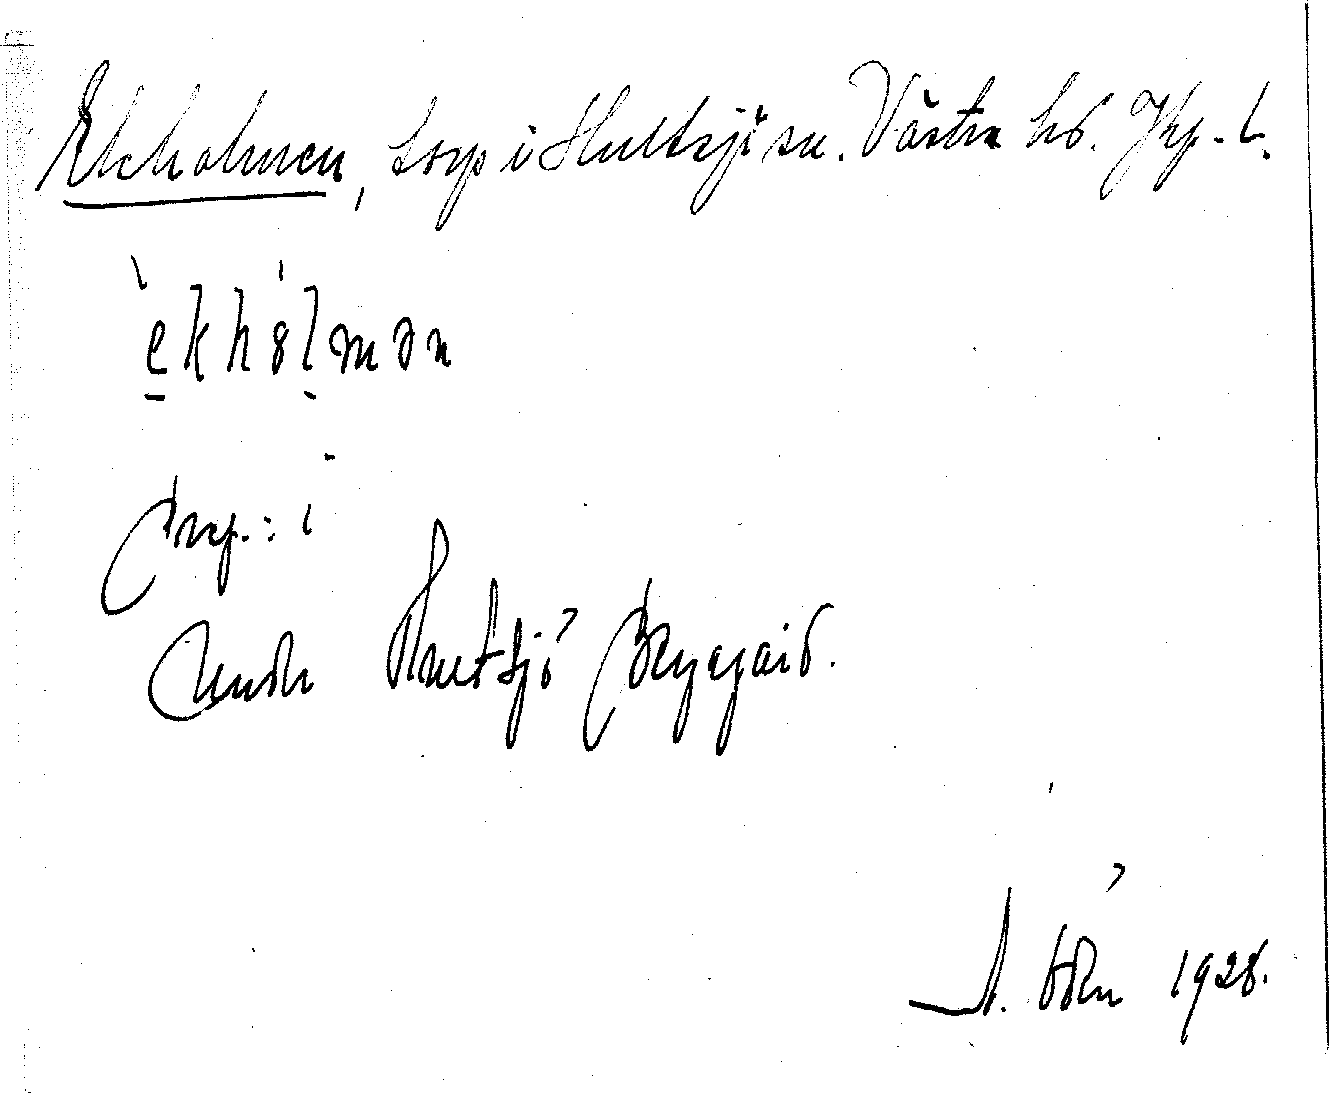 Ekholmen, torp i Hultsjö sn. Västra hd. Jkp. l.
èkhólmən
prep.: i
under Hultsjö Byggård.
1928.